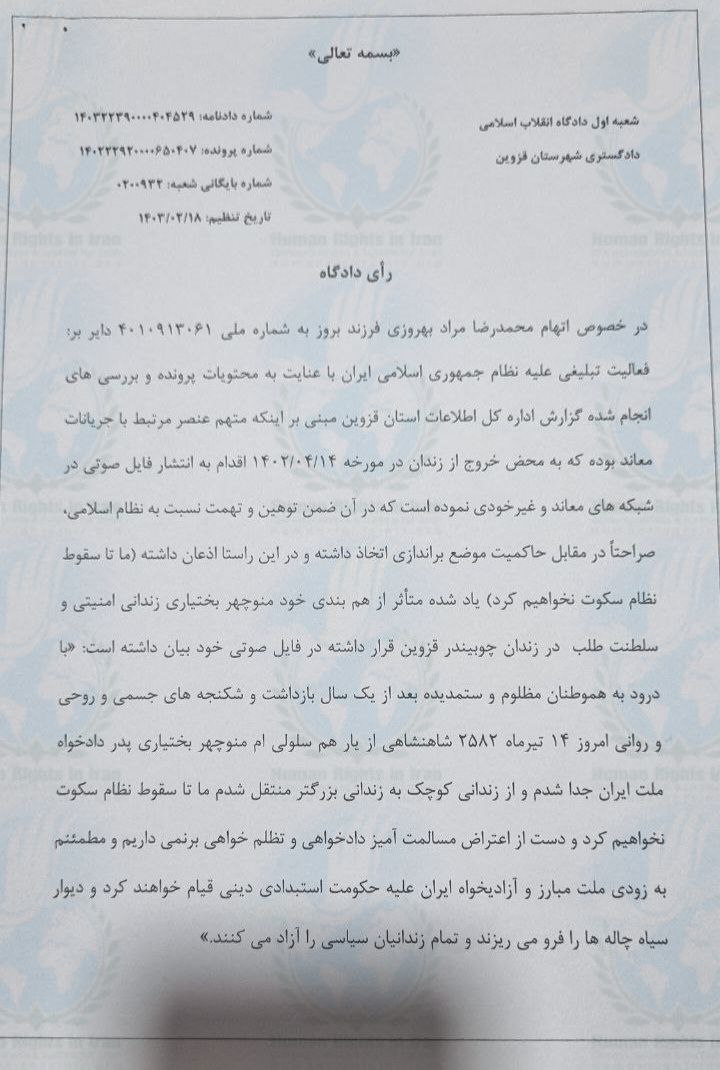 «بسمه تعالی»
شعبه اول دادگاه انقلاب اسلامی
دادگستری شهرستان قزوین
شماره دادنامه: ۱۴۰۳۲۲۳۹۰۰۰۰۴۰۴۵۲۹
شماره پرونده: ۱۴۰۲۲۲۹۲۰۰۰۰۶۵۰۴۰۷
شماره بایگانی شعبه: ۰۲۰۰۹۳۲
تاریخ تنظیم: ۱۴۰۳/۰۲/۱۸
رأی دادگاه
در خصوص اتهام محمدرضا مراد بهروزی فرزند بروز به شماره ملی ۴۰۱۰۹۱۳۰۶۱ دایر بر:
فعالیت تبلیغی علیه نظام جمهوری اسلامی ایران با عنایت به محتویات پرونده و بررسی های
انجام شده گزارش اداره کل اطلاعات استان قزوین مبنی بر اینکه متهم عنصر مرتبط با جریانات
معاند بوده که به محض خروج از زندان در مورخه ۱۴۰۲/۰۴/۱۴ اقدام به انتشار فایل صوتی در
شبکه های معاند و غیرخودی نموده است که در آن ضمن توهین و تهمت نسبت به نظام اسلامی،
صراحتاً در مقابل حاکمیت موضع براندازی اتخاذ داشته و در این راستا اذعان داشته (ما تا سقوط
نظام سکوت نخواهیم کرد) یاد شده متأثر از هم بندی خود منوچهر بختیاری زندانی امنیتی و
سلطنت طلب در زندان چوبیندر قزوین قرار داشته در فایل صوتی خود بیان داشته است: «با
درود به هموطنان مظلوم و ستمدیده بعد از یک سال بازداشت و شکنجه های جسمی و روحی
و روانی امروز ۱۴ تیرماه ۲۵۸۲ شاهنشاهی از یار هم سلولی ام منوچهر بختیاری پدر دادخواه
ملت ایران جدا شدم و از زندانی کوچک به زندانی بزرگتر منتقل شدم ما تا سقوط نظام سکوت
نخواهیم کرد و دست از اعتراض مسالمت آمیز دادخواهی و تظلم خواهی برنمی داریم و مطمئنم
به زودی ملت مبارز و آزادیخواه ایران علیه حکومت استبدادی دینی قیام خواهند کرد و دیوار
سیاه چاله ها را فرو می ریزند و تمام زندانیان سیاسی را آزاد می کنند.»
Human Rights in Iran